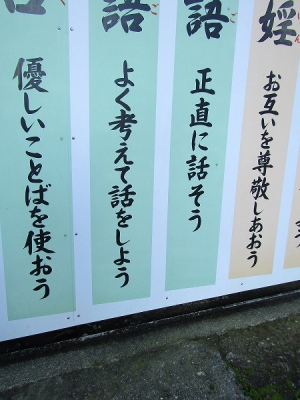 淫
お互いを尊敬しあおう
語
正直に話そう
語
よく考えて話をしよう
優しいことばを使おう